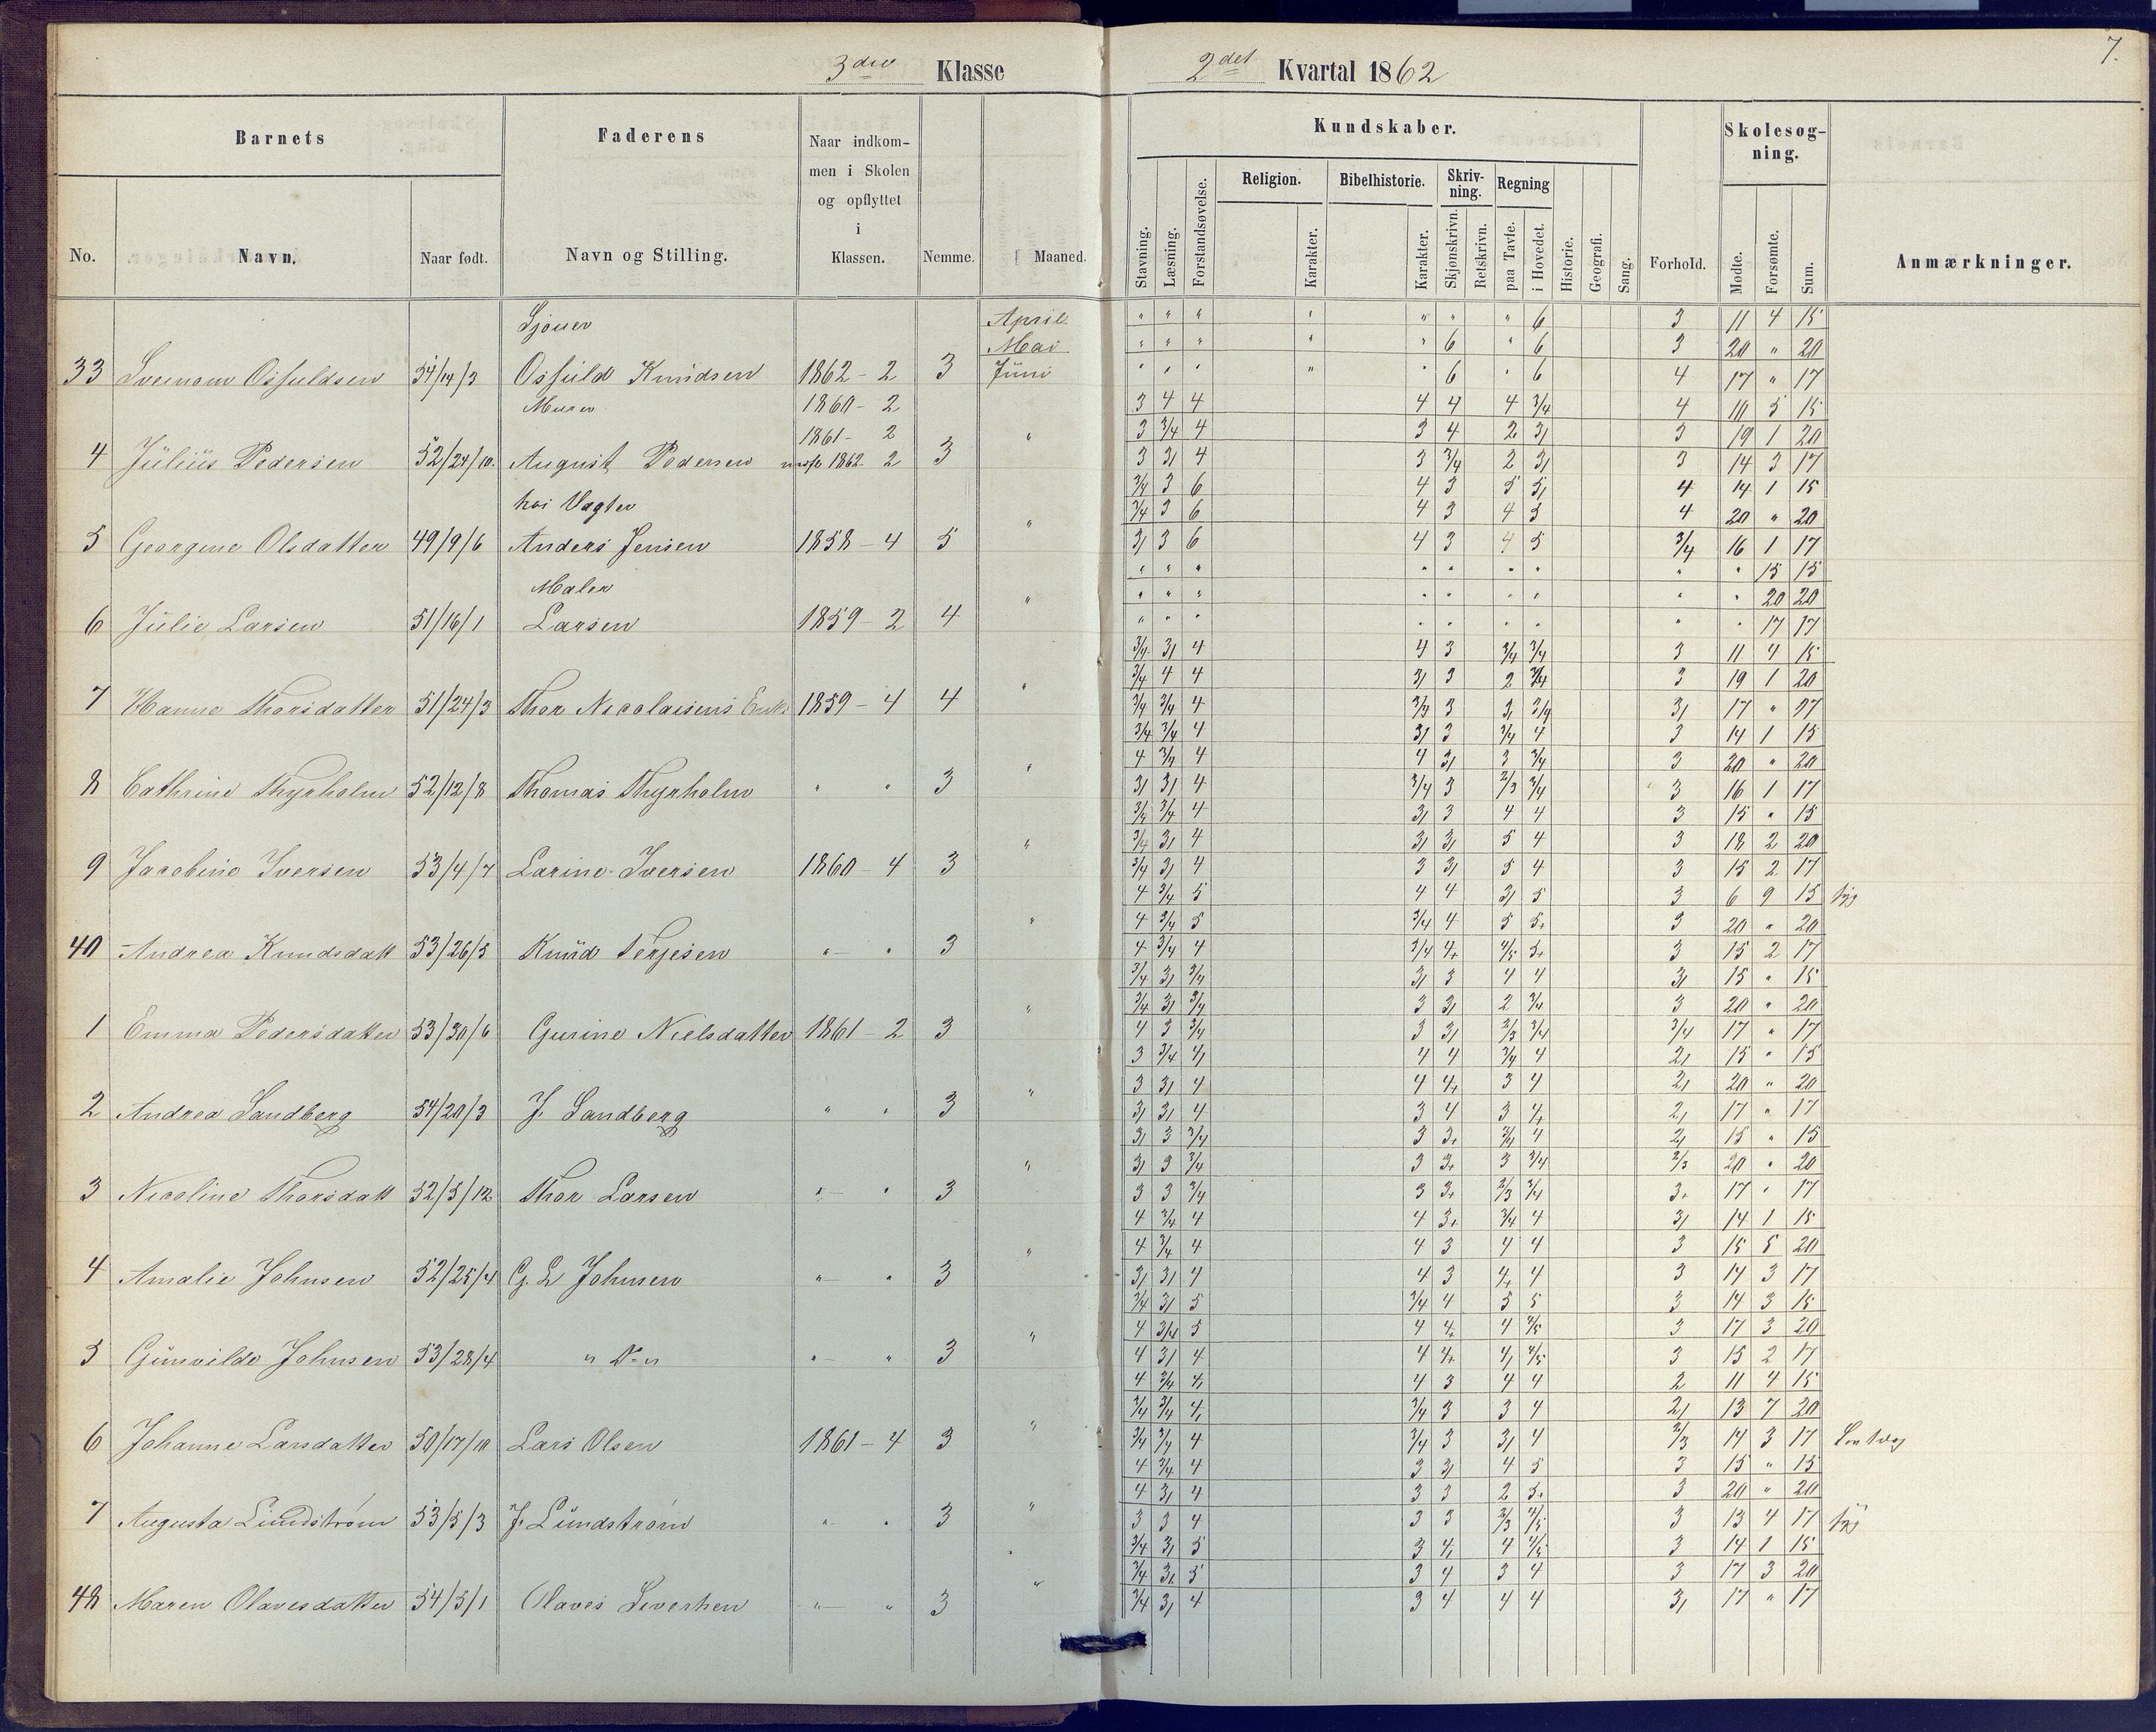 7.
3die Klasse
2det Kvartal 1862
Barnets
Faderens
Naar indkom-
men i Skolen
og opflyttet
i
Klassen.
No.
Navn.
Naar født.
Navn og Stilling.
Nemme.
Maaned.
Kundskaber.
Religion.
Bibelhistorie.
Skriv-
ning.
Regning
Stavning.
Læsning.
Forstandsøvelse.
Karakter.
Karakter.
Skjønskrivn.
Retskrivn.
paa Tavle.
i Hovedet.
Historie.
Geografi.
Sang.
Forhold.
Skolesøg-
ning.
Mødte.
Forsømte.
Sum.
Anmærkninger.
Sjouer April " " " " " " " 6 3 11 4 15
Mai " " " " " 6 " 6 3 20 " 20
33 Osfuldsen 54/14/3 Osfuld Knudsen 1862 - 2 3 Juni " " " " " 6 " 6 4 17 " 17
Murer 1860 - 2 3 4 4 4 4 4 3/4 4 10 5 15
1861 - 2 3 3/4 4 3 4 2 3/ 3 19 1 20
4 Julius Pedersen 52/24/10. August Pedersen 1862 - 2 3 " 3 3/ 4 3 3/4 2 3/ 3 14 3 17
hos Vagter 3/4 3 6 4 3 5 5/ 4 14 1 15
3/4 3 6 4 3 4 5 4 20 " 20
5 Georgine Olsdatter 49/9/6 Anders Jensen 1858 - 4 5 " 3/ 3 6 4 3 4 5 3/4 16 1 17
Maler " " " " " " " " " 15 15
" " " " " " " " " 20 20
6 Julie Larsen 51/16/1 Larsen 1859 - 2 4 " " " " " " " " " " 17 17
3/4 3/ 4 4 3 3/4 3/4 3 11 4 15
3/4 4 4 3/ 3 2 3/4 3 19 1 20
7 Hanne Thorsdatter 51/24/3 Thor Nicolaisens Enke 1859 - 4 4 " 3/4 3/4 4 3/4 3 3/ 3/4 3/ 17 " 17
3/4 3/4 4 3/ 3 3/4 4 3 14 1 15
4 3/4 4 4 3/ 3 3/4 3 20 " 20
8 Cathrine Thyrholm 52/12/8 Thomas Thyrholm " " 3 " 3/ 3/ 4 3/4 3 2/3 3/4 3 16 1 17
3/4 3/4 4 3/ 3 4 4 3 15 " 15
3/4 3/ 4 3/ 3/ 5 4 3 18 2 20
9 Jacobine Iversen 53/4/7 Larine Iversen 1860 - 4 3 " 3/4 3/ 4 3 3/ 5 4 3 15 2 17
4 3/4 5 4 4 3/ 5 3 6 9 15 syg
4 3/4 5 3/4 4 5 5+ 3 20 " 20
40 Andrea Knudsdatt 53/26/5 Knud Terjesen " - " 3 " 4 3/4 4 3/4 4+ 4/5 5+ 3 15 2 17
3/4 3/ 3/4 3/ 3 4 4 3/ 15 " 15
3/4 3/ 3/4 3 3/ 2 3/4 3 20 " 20
1 Emma Pedersdatter 53/30/6 Gurine Nielsdatter 1861 - 2 3 " 4 3 3/4 3 3/ 2/3 3/4 3/4 17 " 17
3 3/4 4/ 4 4 3/4 4 2/ 15 " 15
3 3/ 4 4 4+ 3 4 2/ 20 " 20
2 Andrea Sandberg 54/20/3 J. Sandberg " " 3 " 3/ 3/ 4 3 4 3 4+ 2/ 17 " 17
3/ 3 3/4 3 3+ 3/4 4 2/ 15 " 15
3/ 3 3/4 3 3+ 3 3/4 2/3 20 " 20
3 Nicoline Thorsdatt 52/5/12 Thor Larsen " - " 3 " 3 3 3/4 3 3+ 2/3 3/4 3+ 17 " 17
4 3/4 4 4 3+ 3/4 4 3/ 14 1 15
4 3/4 4 4 3 4 4 3 15 5 20
4 Amalie Johnsen 52/25/4 G. L Johnsen " - " 3 " 3/ 3/ 4 4 3 4+ 4 3 14 3 17
3/4 3/ 5 3/4 4 5 5 3 14 3 15
4 3/4 5 4 4+ 4 4/5 3 17 3 20
5 Gunvilde Johnsen 53/28/4 " Do " " - " 3 " 4 3/ 4 4 4+ 4/ 4/5 3 15 2 17
4 3/4 4/ 4 3 4 4 2 11 4 15
3/4 3/4 4/ 3/4 3 3 4 2/ 13 7 20
6 Johanne Larsdatter 50/17/10 Lars Olsen 1861 - 4 3 " 3/4 3/4 4 3/4 3 3/ 4 2/3 14 3 17
4 3/4 4 3 3/ 4 5 3 15 " 15
4 3/ 4 3 3 2 5+ 3 20 " 20
7 Augusta Lundstrøm 53/5/3 J. Lundstrøm " - " 3 " 3 3 4 3 3 2/3 4/5 3 13 4 17 syg
3/4 3/ 5 3 4/ 4 4/5 3 14 1 15
3/4 3/ 5 3 4 3 4 3 17 3 20
48 Maren Olavesdatter 54/5/1 Olaves " - " 3 " 3/4 3/ 4 3 4 4 4 3/ 17 " 17